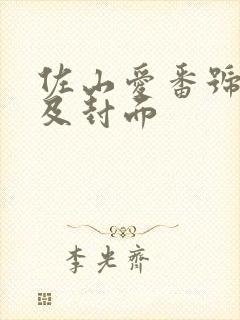 佐山愛番號
及封面
李光齊